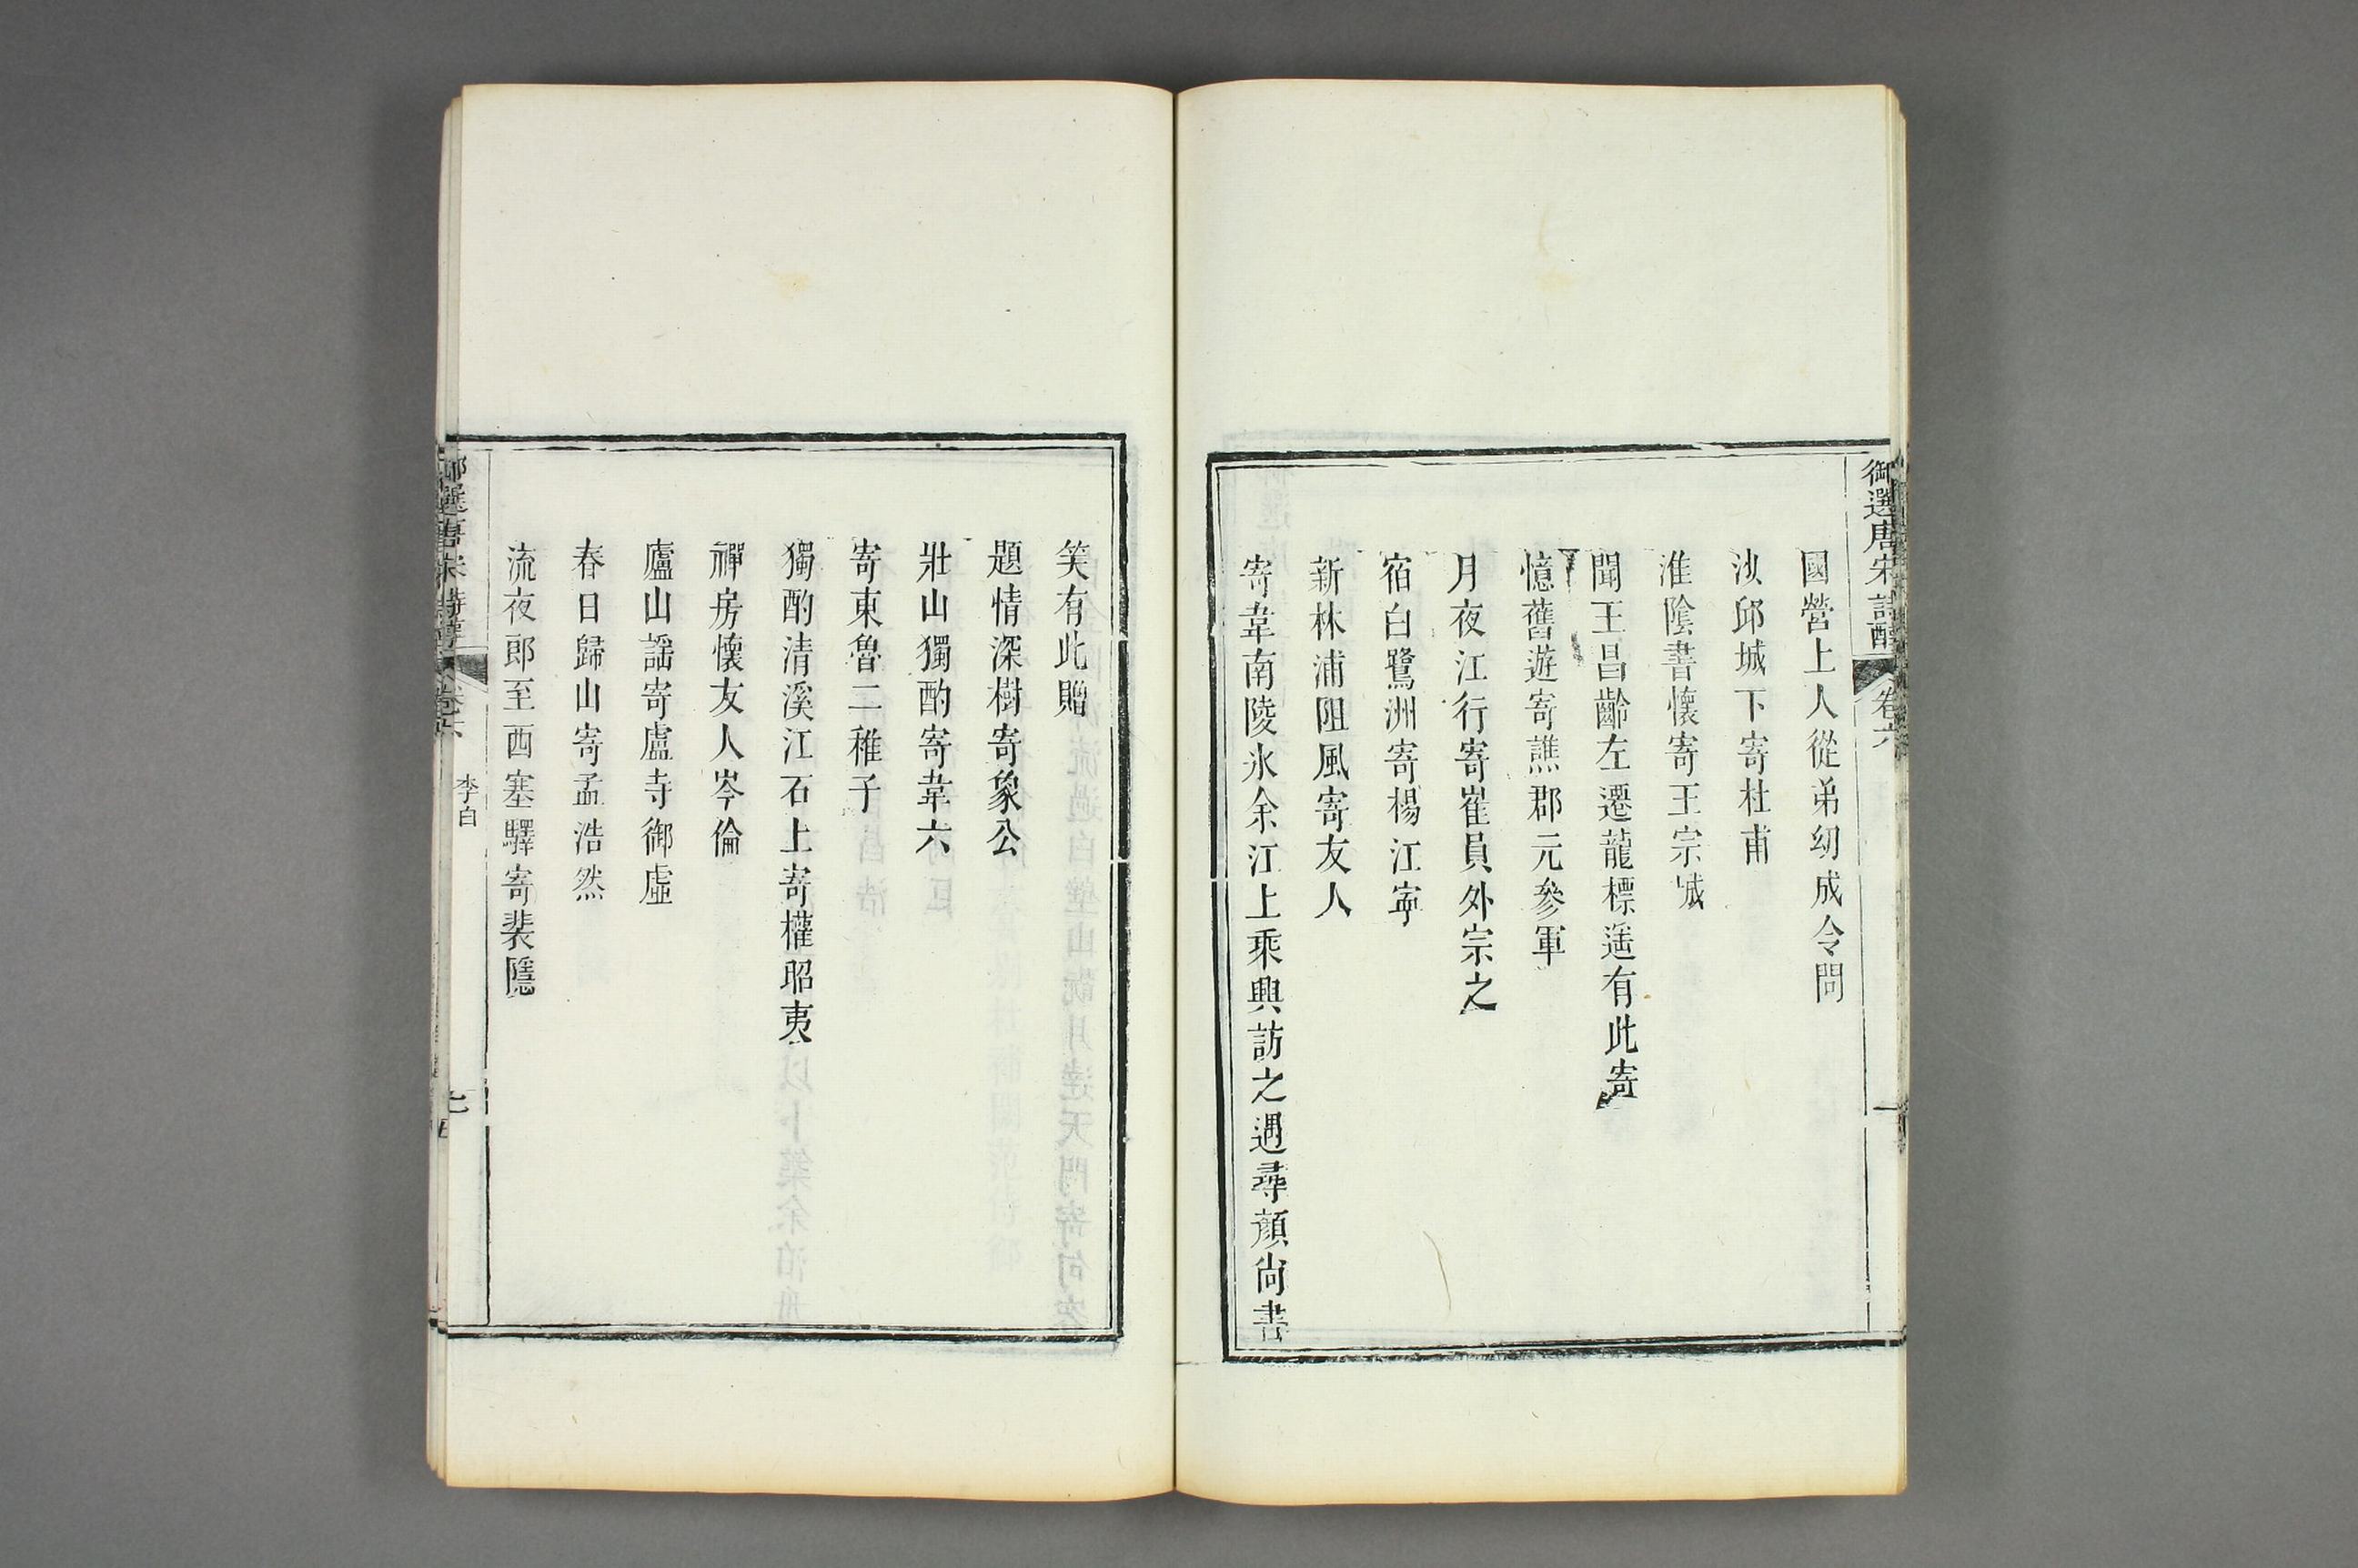 御選唐宋詩醇 卷六
國營上人從弟幼成令問
沙邱城下寄杜甫
淮陰書懷寄王宗城
聞王昌齡左遷龍標遥有此寄
憶舊遊寄譙郡元參軍
月夜江行寄崔員外宗之
宿白鷺洲寄楊江寧
新林浦阻風寄友人
寄韋南陵氷余江上乘興訪之遇尋顏尙書
笑有此贈
題情深樹寄象公
壯山獨酌寄韋六
寄東魯二稚子
獨酌清溪江石上寄權昭夷
禪房懷友人岑倫
廬山謡寄盧寺御虛
春日歸山寄孟浩然
流夜郎至西塞驛寄裴隱
李白